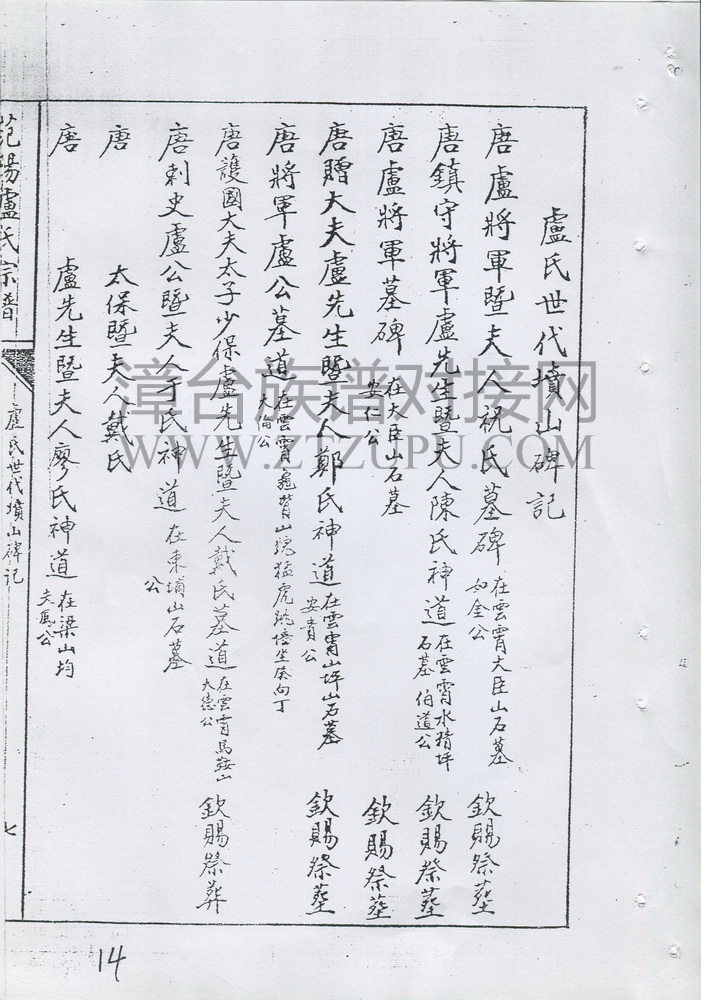 盧氏世代墳山碑記
唐盧將軍暨夫人祝氏墓碑 在雲霄大臣山石墓 如金公 欽賜祭塟
唐鎮守將軍盧先生暨夫人陳氏神道 在雲霄水 坪石墓 伯道公 欽賜祭塟
唐盧將軍墓碑 在大臣山石墓 安仁公 欽賜祭塟
唐贈大夫盧先生暨夫人鄭氏神道 在雲霄山坪山石墓 安貴公 欽賜祭塟
唐將軍盧公墓道 在雲霄龜 山 猛虎跳 坐癸向丁 大倫公
唐護國大夫太子少保盧先生暨夫人戴氏墓道 在雲霄馬鞍山 大德公 欽賜祭葬
唐刺史盧公暨夫人于氏神道 在東埔山石墓 公
唐 太保暨夫人戴氏
唐 盧先生暨夫人廖氏神道 在梁山均 公
范陽盧氏宗譜
盧氏世代墳山碑記
七
14
漳台族谱对接网
WWW.ZTZUPU.COM